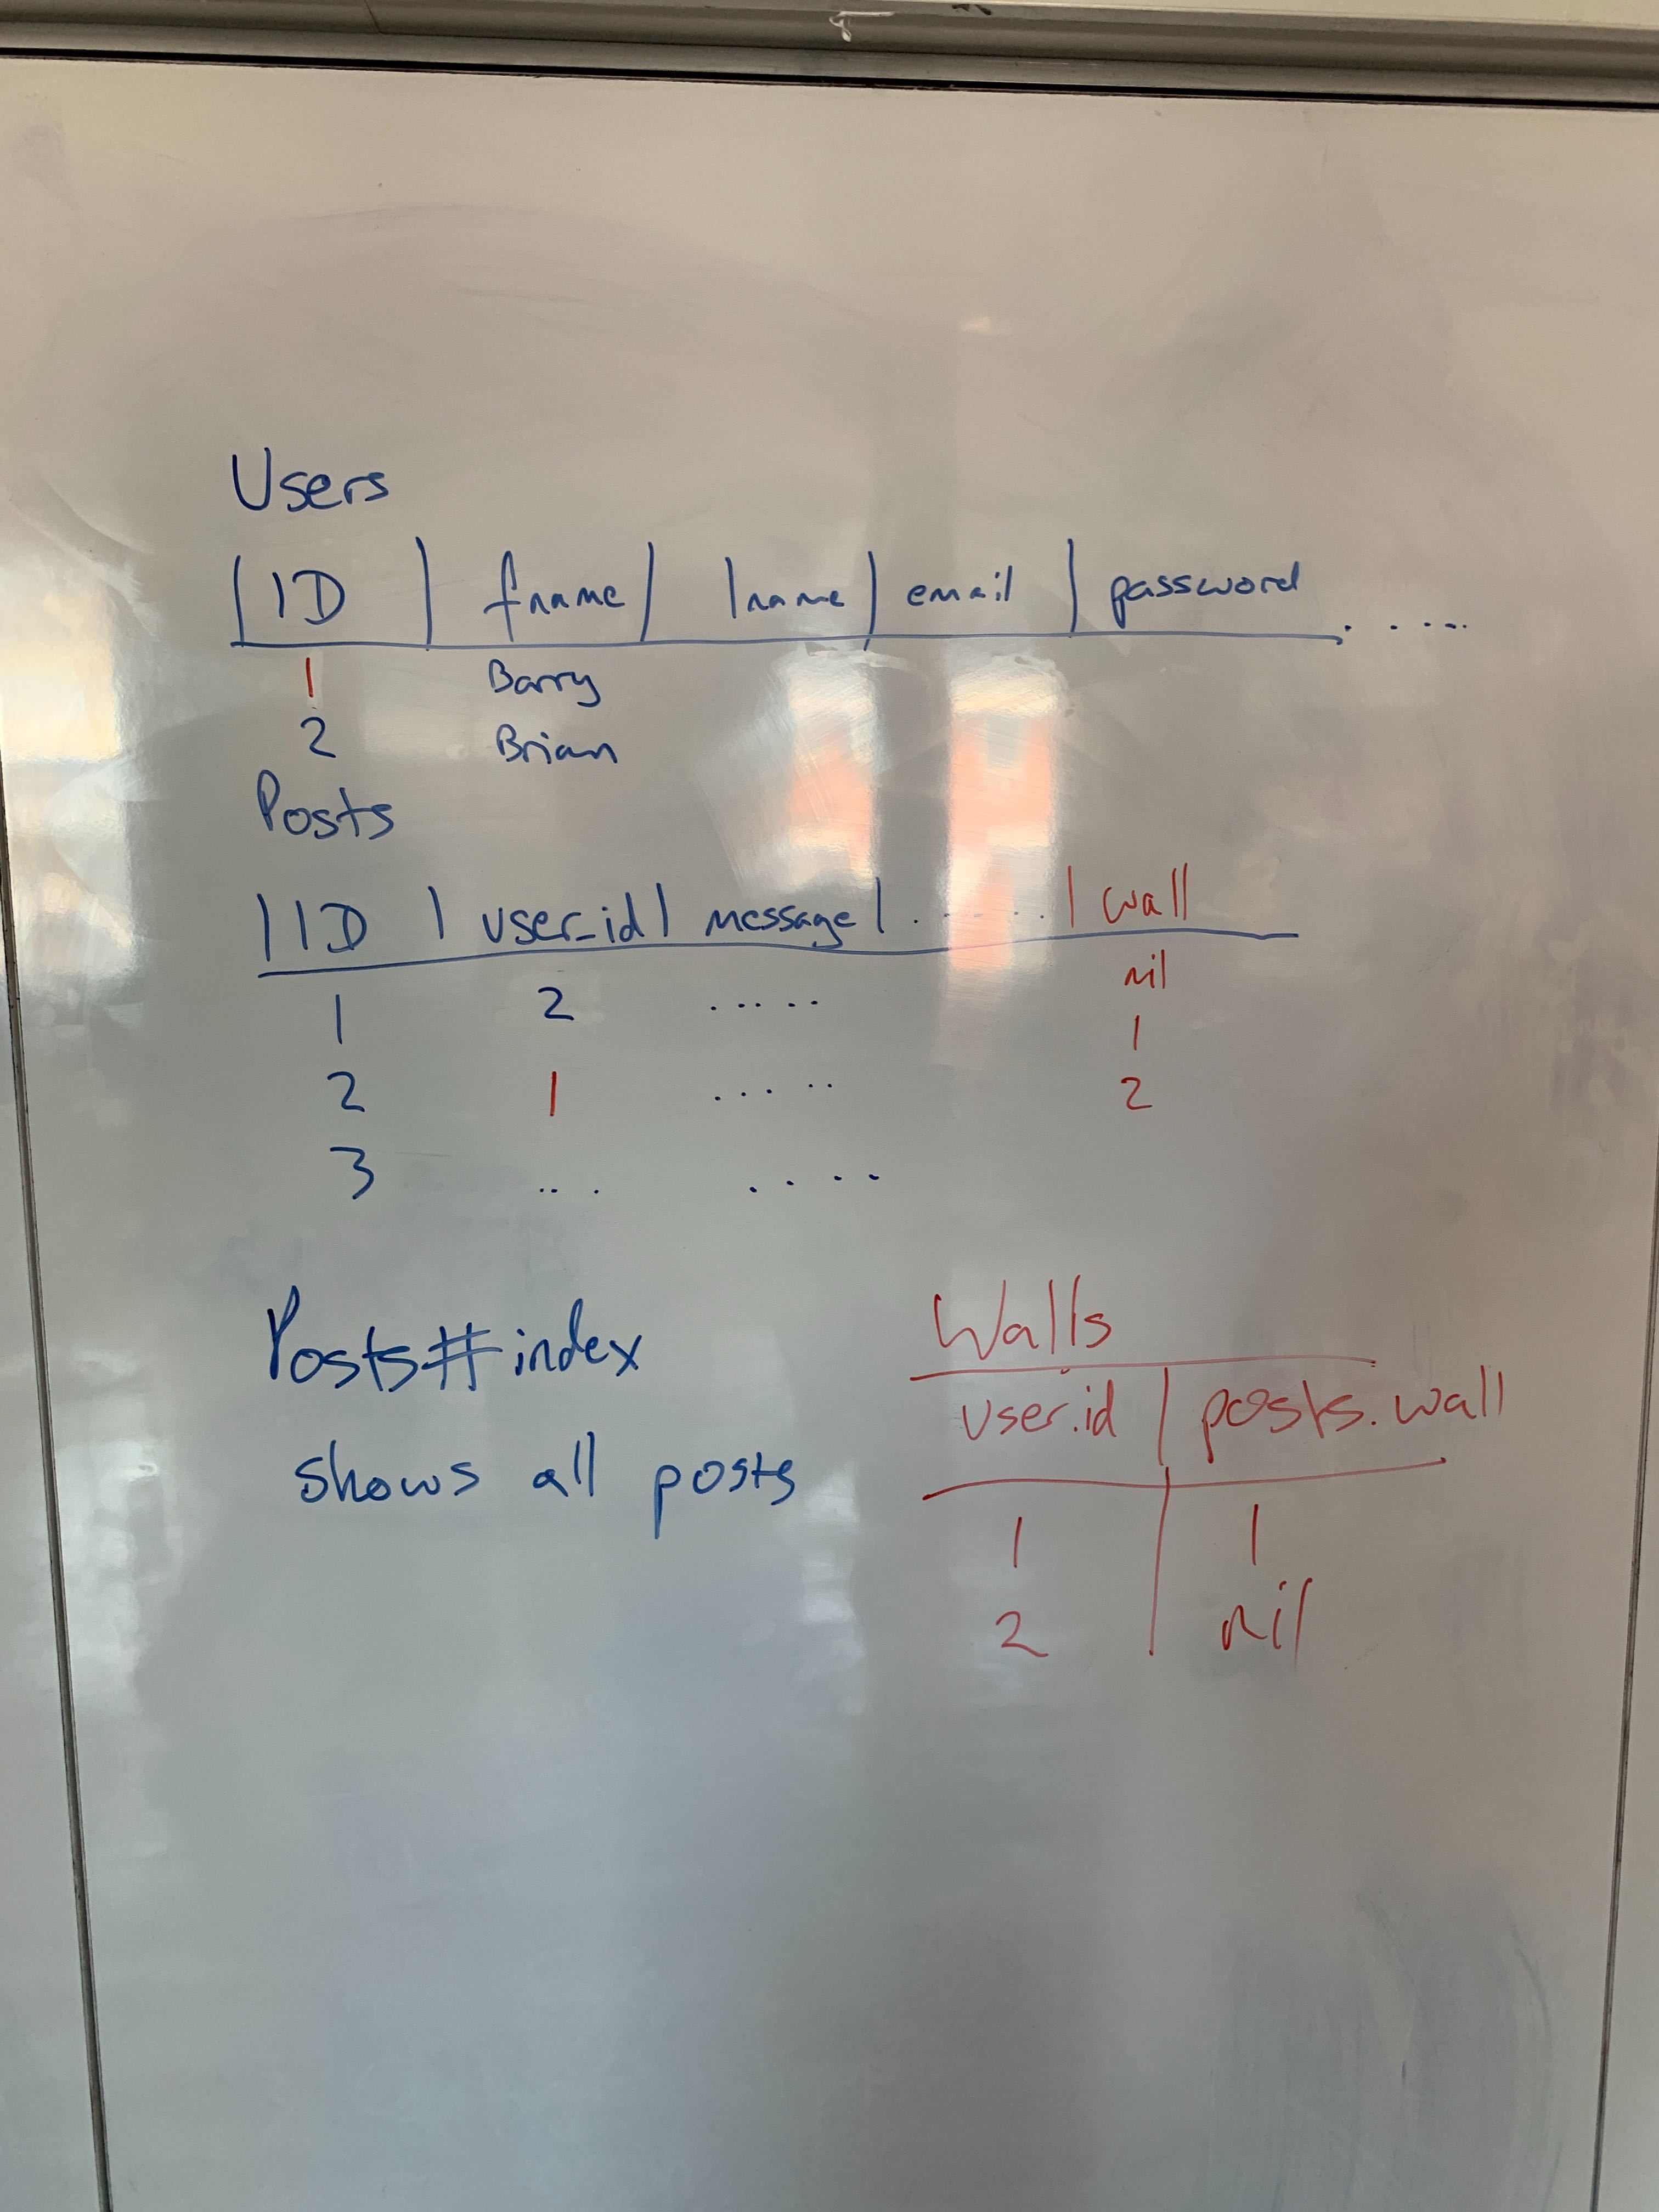 Users
| ID | fname | lname | email | password . . . . .
1 Barry
2 Brian
Posts
| ID | user_id | message | . . . . . | wall
nil
1 2 . . . . .
1
2 1 . . . . . 2
3 . . . . . . .
Posts#index
shows all posts
Walls
user.id | posts.wall
1 | 1
2 | nil